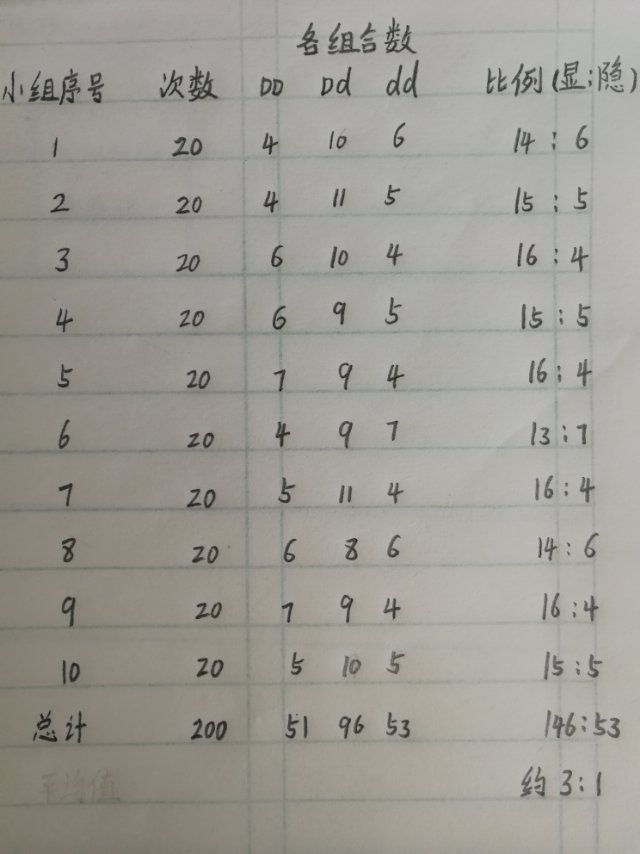 各组合数
小组序号 次数 DD Dd dd 比例(显:隐)
1 20 4 10 6 14:6
2 20 4 11 5 15:5
3 20 6 10 4 16:4
4 20 6 9 5 15:5
5 20 7 9 4 16:4
6 20 4 9 7 13:7
7 20 5 11 4 16:4
8 20 6 8 6 14:6
9 20 7 9 4 16:4
10 20 5 10 5 15:5
总计 200 51 96 53 146:53
平均值 约3:1